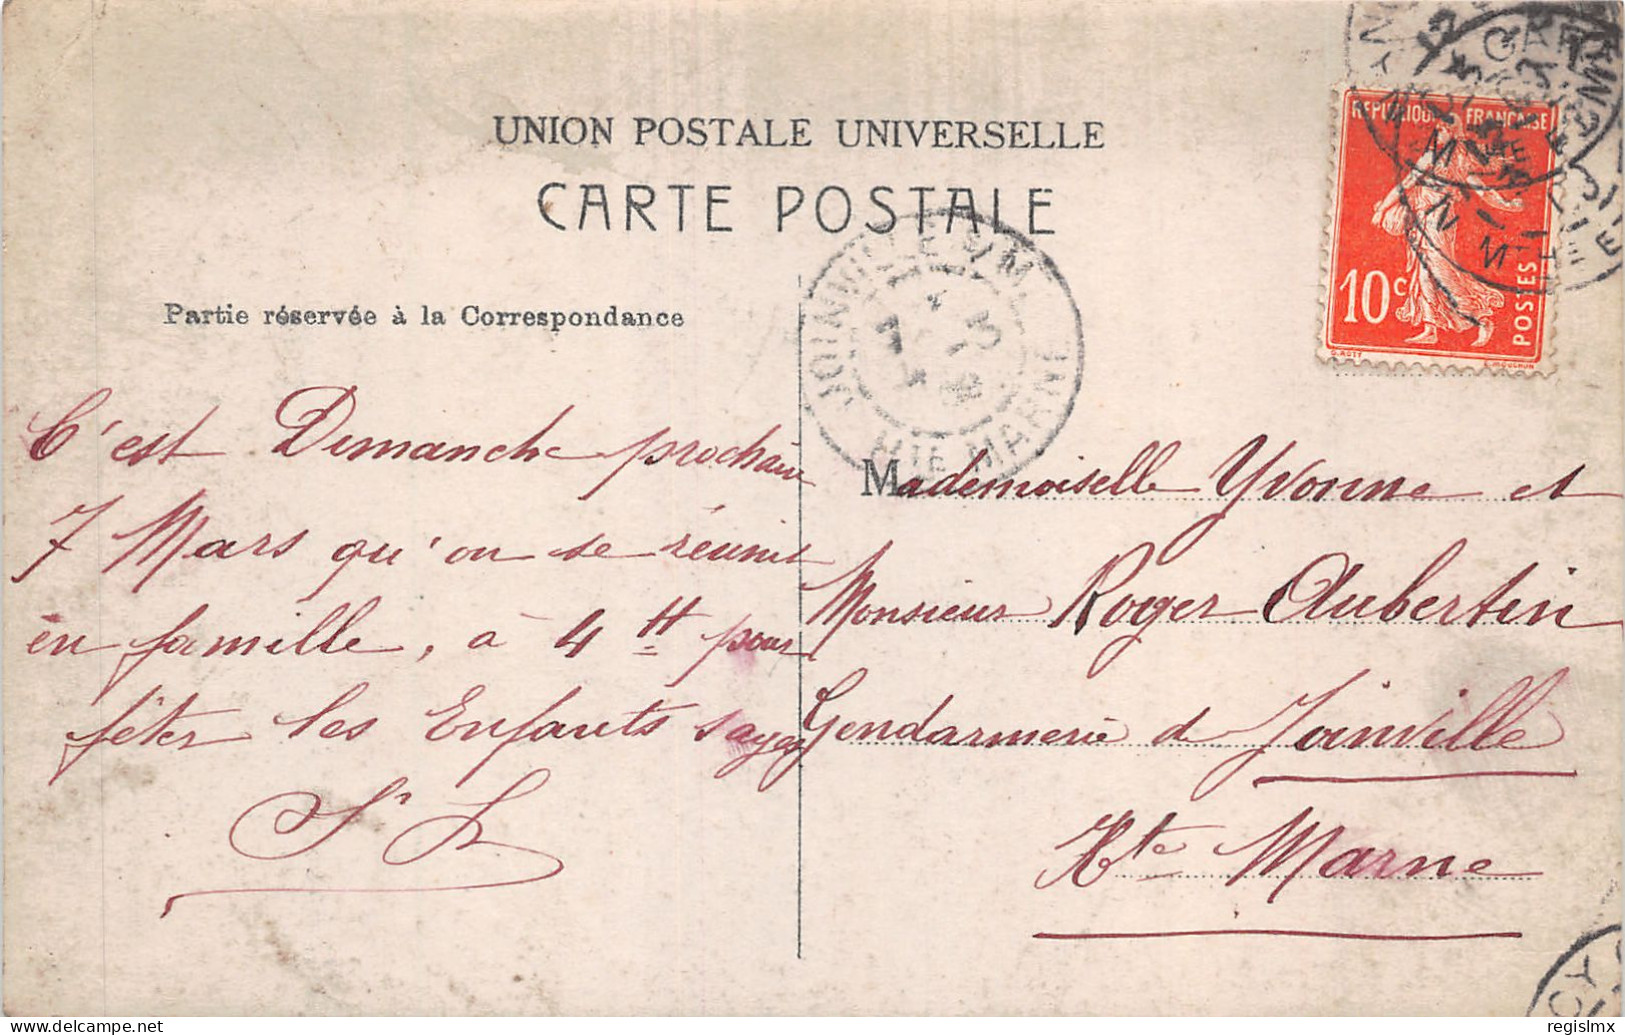 UNION POSTALE UNIVERSELLE
CARTE POSTALE
REPUBLIQUE FRANÇAISE
10c
POSTES
O. ROTY
E. MOUCHON
JOINVILLE S/M.
HTE MARNE
Partie réservée à la Correspondance
C'est Dimanche prochain
7 Mars qu'on se réunit
en famille, à 4 H pour
fêter les Enfants
Mademoiselle Yvonne et
Monsieur Roger Aubertin
Gendarmerie de Joinville
Hte Marne
delcampe.net
regislmx